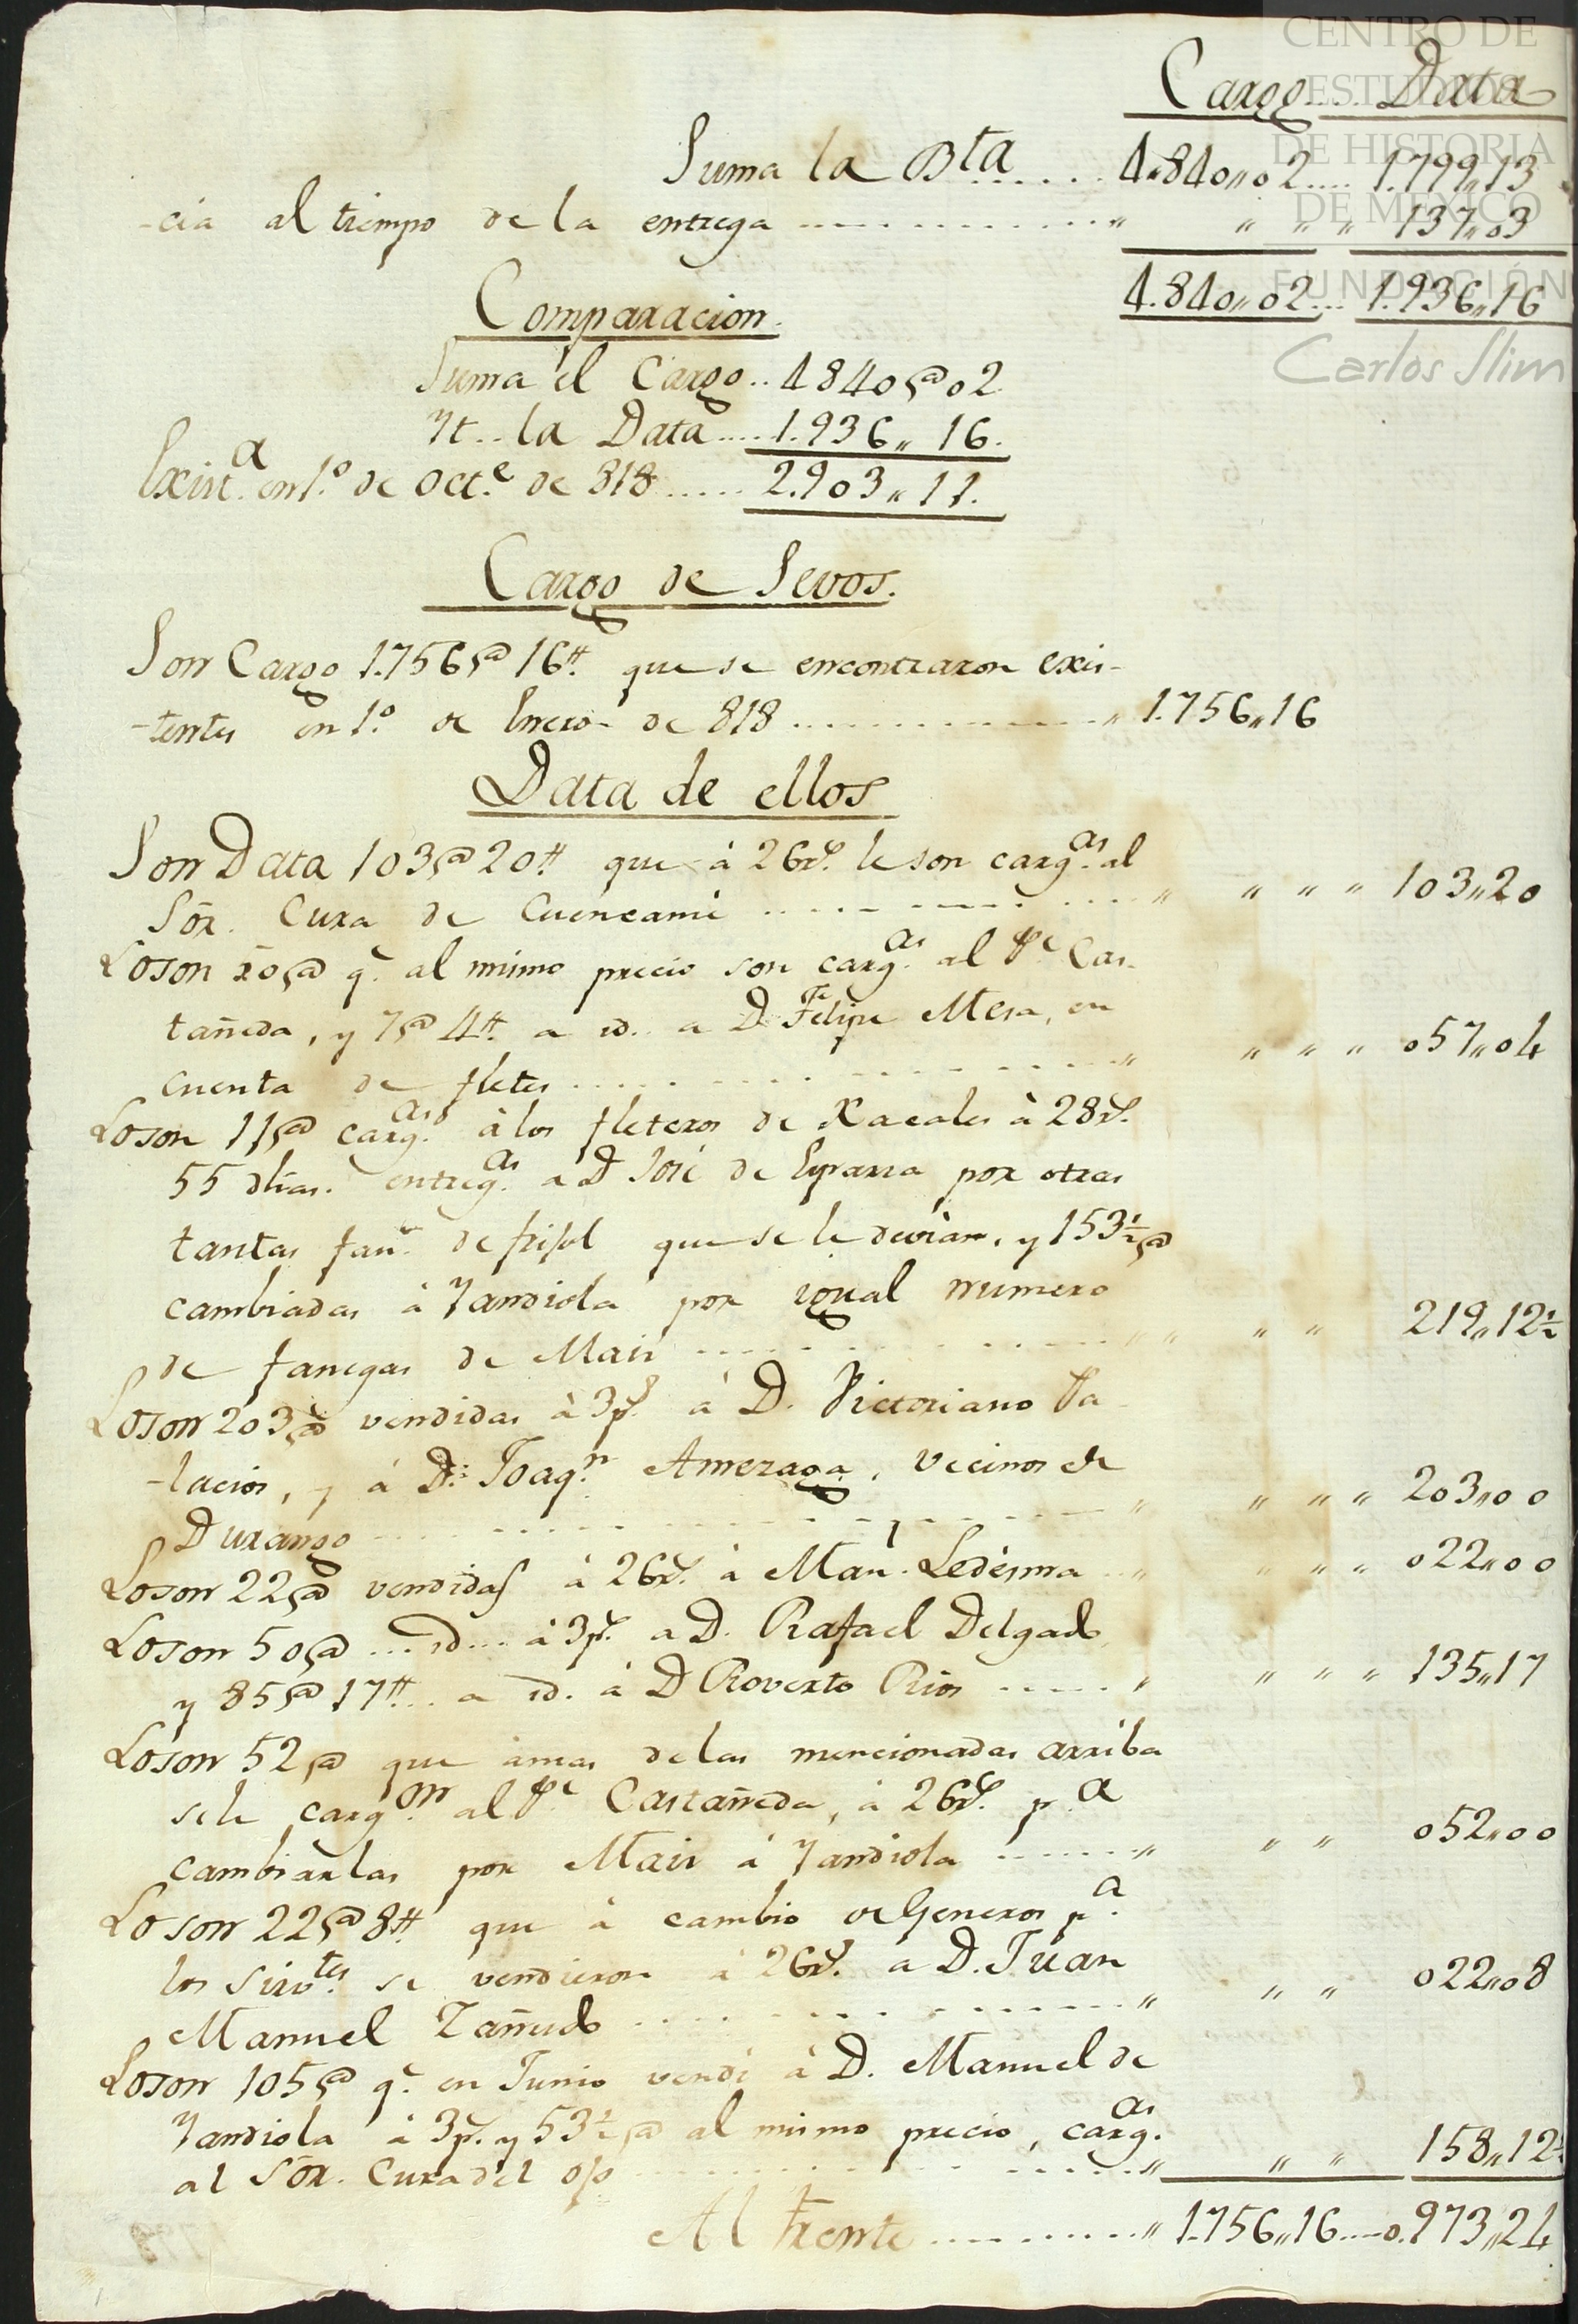 CENTRO DE
ESTUDIOS
DE HISTORIA
DE MEXICO
FUNDACIÓN
Carlos Slim
Cargo.... Data
Suma la Bta...... 4.840,,02.... 1.799,,13
-cia al tiempo de la entrega ------------ " " " " 137,,03
4.840,,02... 1.936,,16
Comparacion.
Suma el Cargo.. 4840@02
Yt.. la Data.... 1.936,,16.
Exist.a en 1.º de Oct.e de 818...... 2.903,,11.
Cargo de Sevos.
Son Cargo 1.756@16tt. que se encontraron exis-
-tentes en 1.º de Enero de 818 ............ " 1.756,,16
Data de ellos
Son Data 103@20tt. que à 26rs. le son carg.as al
Sõr. Cura de Cuencamé ............ " " " " 103,,20
Loson 50@ q.e al mismo precio son carg.as al Pe. Cas-
tañeda, y 7@4tt. a id. a D Felipe Mesa, en
cuenta de fletes ............ " " " " 057,,04
Loson 11@ carg.as à los fleteros de Xacales à 28rs.
55 dhas. entreg.as a D José de Esparza por otras
tantas fan.s de frisol que se le devian, y 153½@
cambiadas à Yandiola por igual numero
de fanegas de Mais ............ " " " " 219,,12½
Loson 203@ vendidas à 3ps. à D. Victoriano Pa-
-lacios, y à D.n Joaq.n Amezaga, vecinos de
Durango ............ " " " " 203,,00
Loson 22@ vendidas à 26rs. à Man.l Ledesma .. " " " " 022,,00
Loson 50@ ... id... à 3ps. a D. Rafael Delgado,
y 85@17tt.. a id. à D Roverto Rios ..... " " " " 135,,17
Loson 52@ que àmas delas mencionadas arriba
sele carg.on al Pe. Castañeda, à 26rs. p.a
cambiarlas por Mais à Yandiola ....... " " " 052,,00
Loson 22@8tt. que à cambio de Generos p.a
los Sirv.tes se vendieron à 26rs. a D. Juan
Manuel Zañudo ............ " " " 022,,08
Loson 105@ q.e en Junio vendi à D. Manuel de
Yandiola à 3ps. y 53½@ al mismo precio, carg.as
al Sõr. Cura del Oro ............ " " " 158,,12½
Al Frente .......... " 1.756,,16....0.973,,24